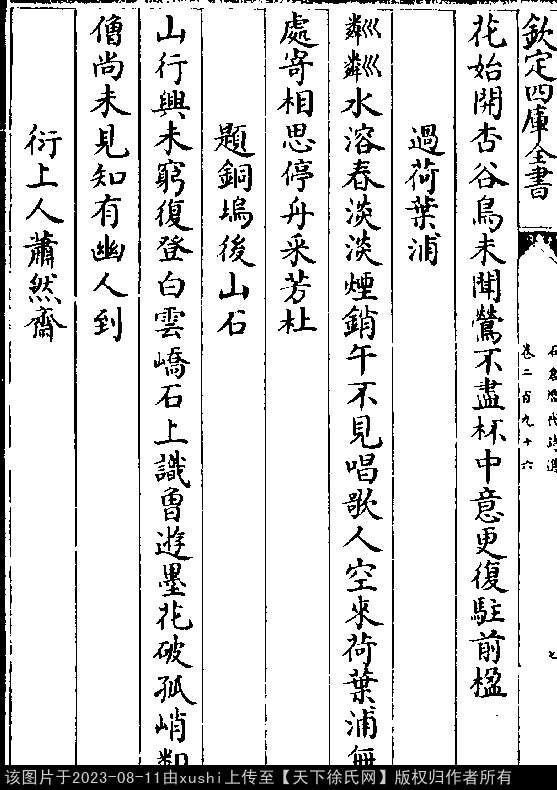 欽定四庫全書
卷二百九十六
花始開杏谷鳥未聞鶯不盡杯中意更復駐前楹
過荷葉浦
粼粼水溶春淡淡煙銷午不見唱歌人空來荷葉浦無
處寄相思停舟采芳杜
題銅塢後山石
山行興未窮復登白雲嶠石上識魯遊墨花破孤峭
僧尚未見知有幽人到
衍上人蕭然齋
该图片于2023-08-11由xushi上传至【天下徐氏网】版权归作者所有